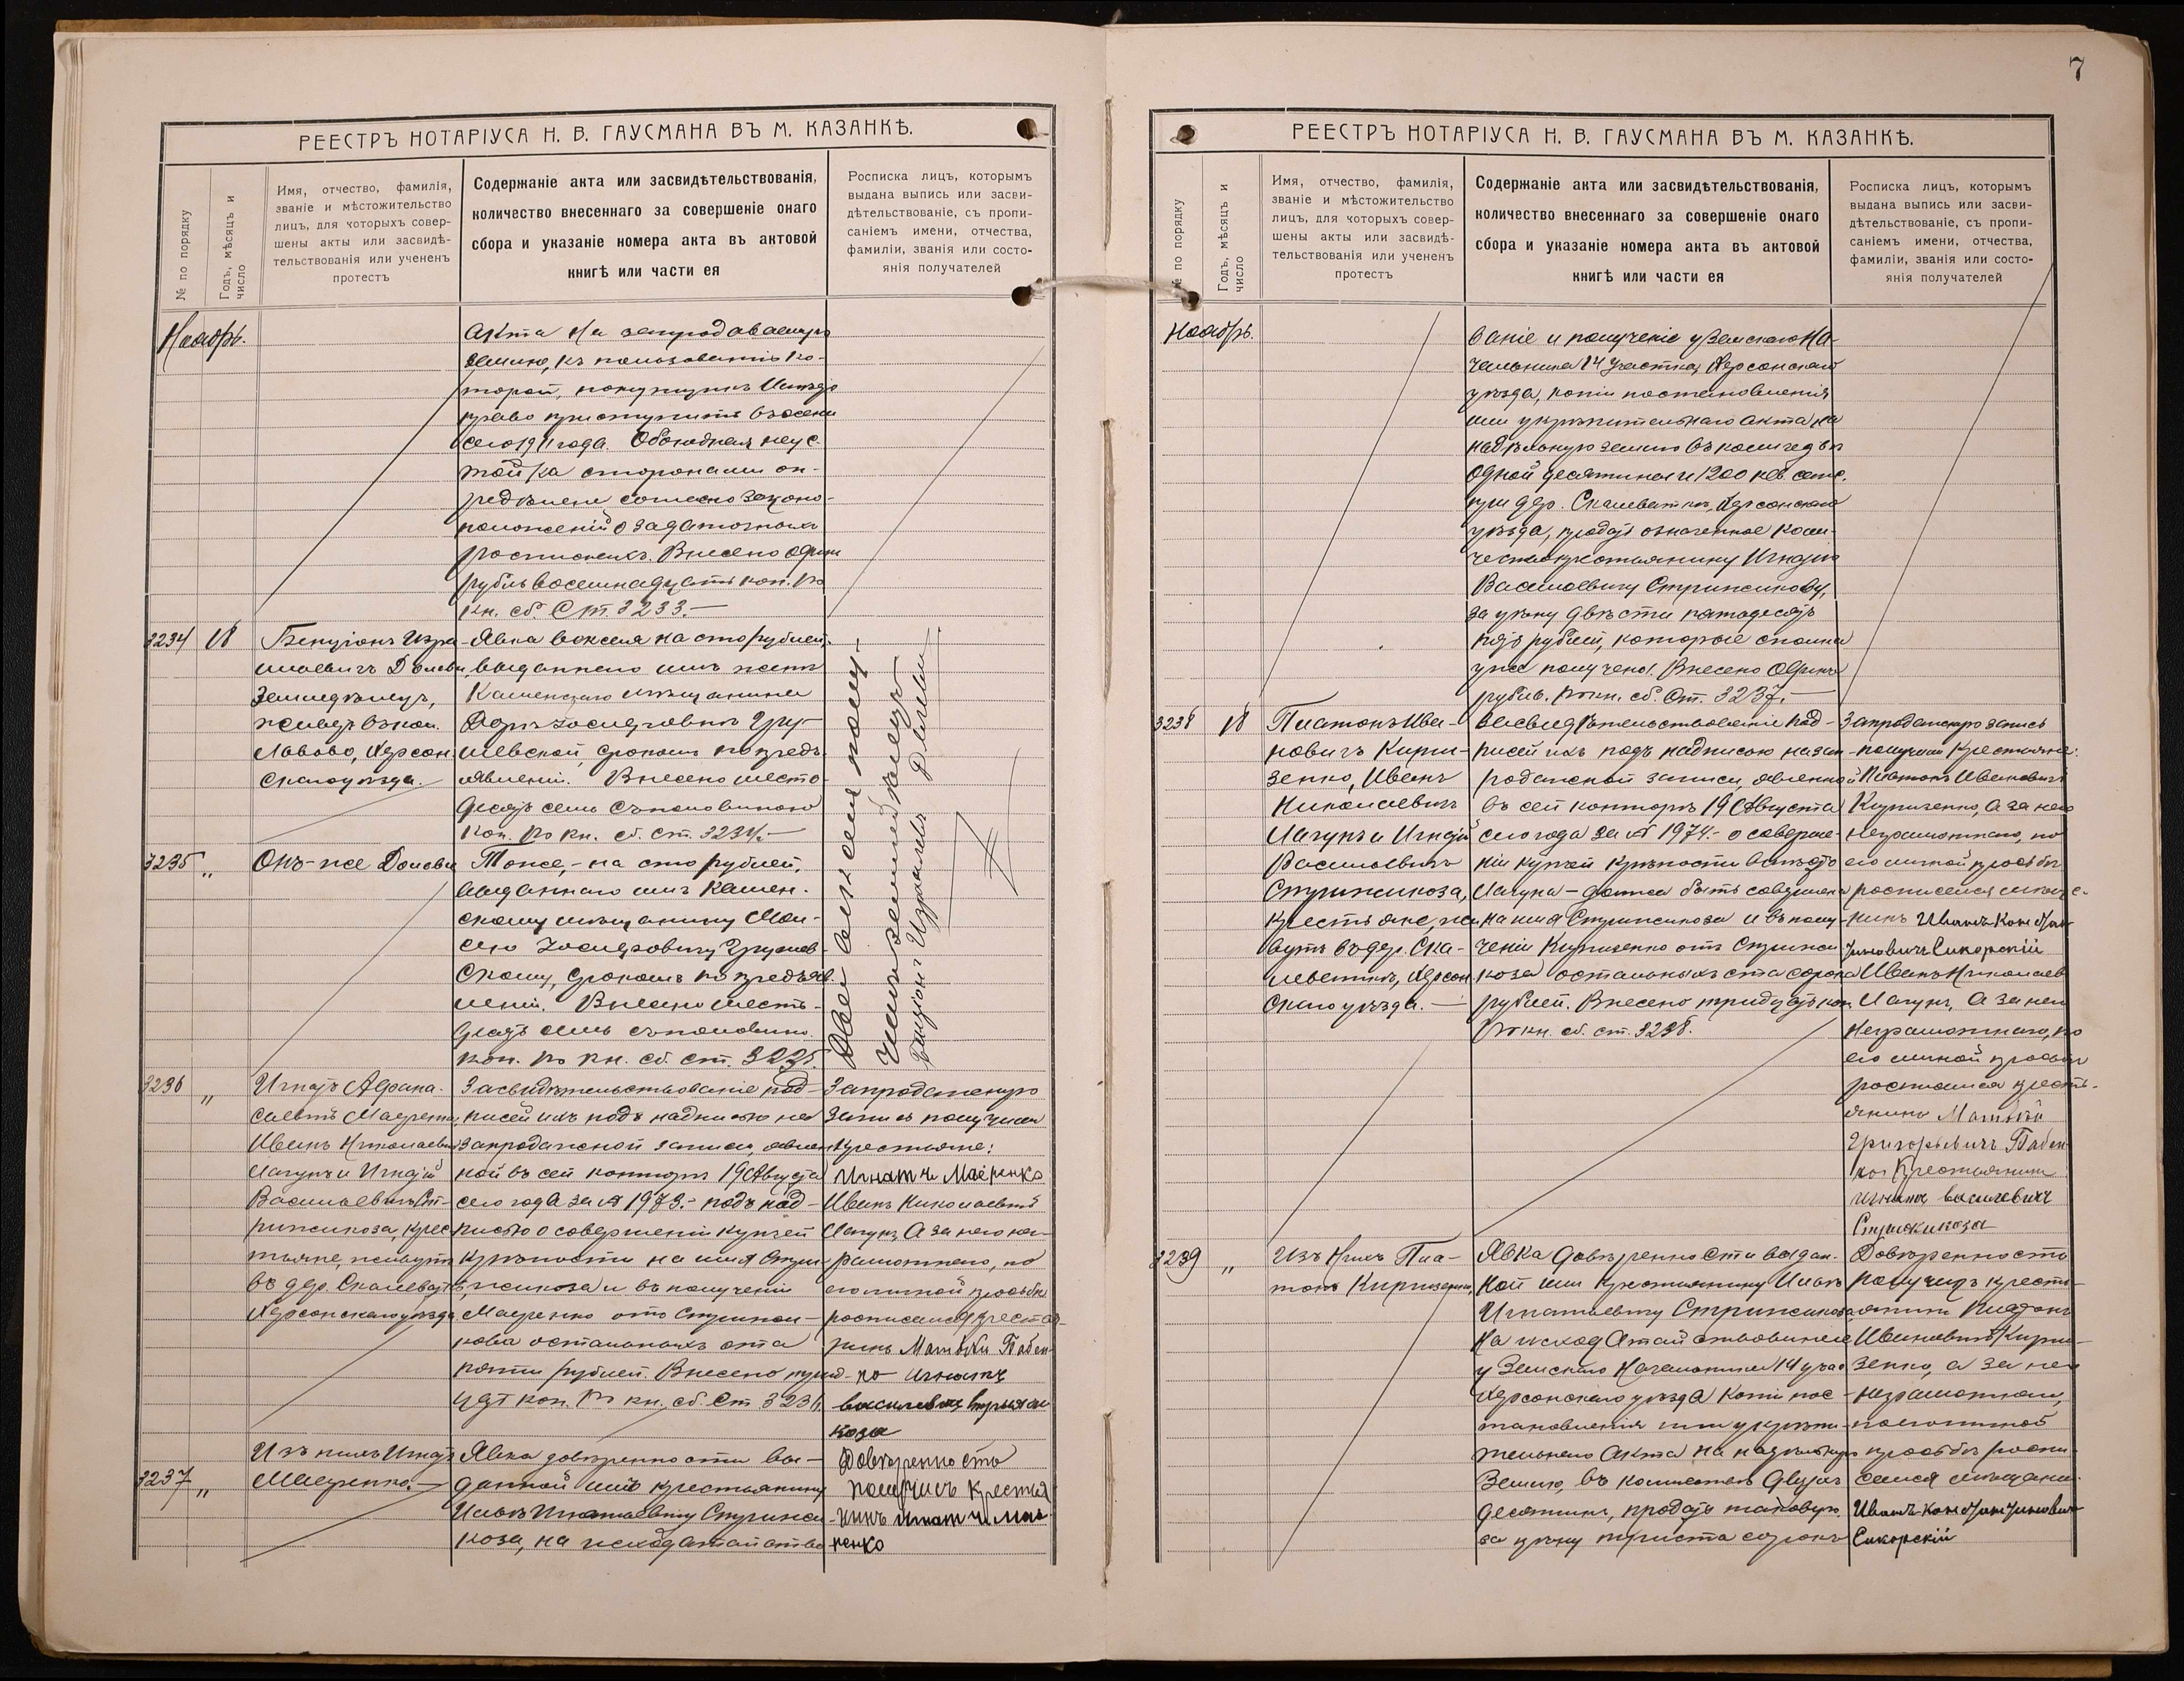 РЕЕСТРЪ НОТАРІУСА Н. В. ГАУСМАНА ВЪ М. КАЗАНКѢ.
№ по порядку
Годъ, мѣсяцъ и
число
Имя, отчество, фамилія,
званіе и мѣстожительство
лицъ, для которыхъ совер-
шены акты или засвидѣ-
тельствованія или учененъ
протестъ
Содержаніе акта или засвидѣтельствованія,
количество внесеннаго за совершеніе онаго
сбора и указаніе номера акта въ актовой
книгѣ или части ея
Росписка лицъ, которымъ
выдана выпись или засви-
дѣтельствованіе, съ пропи-
саніемъ имени, отчества,
фамиліи, званія или состо-
янія получателей
Ноябрь.
акта на запродаваемую
землю, къ пользованію ко-
торой, покупщикъ имѣетъ
право приступить въ осени
сего 1911 года. Обоюдная неус-
тойка сторонами оп-
редѣлена согласно законо-
положеній о задаточныхъ
роспискахъ. Внесено одинъ
рубль восемнадцать коп. по
кн. сб. Ст. 3233.—
3234 18
Бенціонъ Изра-
илевичъ
Земледѣлецъ,
живетъ въ кол.
Львово, Херсон-
скаго уѣзда.
Явка векселя на сто рублей,
выданнаго имъ женѣ
Каменскаго мѣщанина
рубль
шевской, срокомъ по предъ-
явленіи. Внесено шесть-
десятъ семь съ половиною
коп. По кн. сб. ст. 3234.—
Два векселя полу-
чилъ земледѣлецъ
Бенціонъ Израилевъ
3235 "
Онъ-же
Тоже,- на сто рублей,
выданнаго имъ Камен-
скому мѣщанину Мои-
сею
скому, срокомъ по предъяв-
леніи. Внесено шесть-
десятъ семь съ половиною
коп. По кн. сб. ст. 3235.
3236 "
Игнатъ Афана-
сьевичъ
Иванъ Николаевичъ
Лагунъ и Игнатій
Васильевичъ Ст-
рижикоза, крес-
тьяне, живутъ
въ дер. Скалеваткѣ,
Херсонскаго уѣзда
Засвидѣтельствованіе под-
писей ихъ подъ надписью на
Запродажной записи, явлен-
ной въ сей конторѣ 19 Августа
сего года за № 1973.- подъ над-
писью о совершеніи купчей
крѣпости на имя Стри-
жикоза и въ полученіи
отъ Стрижи-
коза остальныхъ ста
пяти рублей. Внесено трид-
цать коп. По кн. сб. Ст. 3236.
Запродажную
Запись получили
Крестьяне:
Иванъ Николаевичъ
Лагунъ, А за него не-
грамотнаго, по
его личной просьбѣ
росписался крестья-
нинъ Матвѣй Бабен-
ко Игнатъ
василевичъ стрижи
коза
3237 "
Изъ нихъ Игнатъ
Явка довѣренности вы-
данной имъ крестьянину
Игнатьевичу Стрижи-
коза, на исходатайство
Довѣренность
получилъ крестья-
нинъ
7
РЕЕСТРЪ НОТАРІУСА Н. В. ГАУСМАНА ВЪ М. КАЗАНКѢ.
№ по порядку
Годъ, мѣсяцъ и
число
Имя, отчество, фамилія,
званіе и мѣстожительство
лицъ, для которыхъ совер-
шены акты или засвидѣ-
тельствованія или учененъ
протестъ
Содержаніе акта или засвидѣтельствованія,
количество внесеннаго за совершеніе онаго
сбора и указаніе номера акта въ актовой
книгѣ или части ея
Росписка лицъ, которымъ
выдана выпись или засви-
дѣтельствованіе, съ пропи-
саніемъ имени, отчества,
фамиліи, званія или состо-
янія получателей
Ноябрь.
ваніе и полученіе у Земскаго На-
чальника 14 участка, Херсонскаго
уѣзда, копіи постановленія
или укрѣпительнаго акта на
надѣльную землю въ количествѣ
одной десятины и 1200 кв. саж.
при дер. Скалеваткѣ, Херсонскаго
уѣзда, продать означенное коли-
чество крестьянину Игнатію
Васильевичу Стрижикозу,
за цѣну двѣсти пятьдесятъ
пять рублей, которые сполна
уже получены. Внесено Одинъ
рубль. По кн. сб. Ст. 3237.—
3238 18
Платонъ Ива-
новичъ Кири-
зенко, Иванъ
Николаевичъ
Лагунъ и Игнатій
Васильевичъ
Стрижикоза,
Крестьяне, жи-
вутъ въ дер. Ска-
леваткѣ, Херсон-
скаго уѣзда.—
Засвидѣтельствованіе под-
писей ихъ подъ надписью на зап-
родажной записи, явленной
въ сей конторѣ 19 Августа
сего года за № 1974.- о соверше-
ніи купчей крѣпости
Лагуна - должна быть совершена
на имя Стрижикоза и въ полу-
ченіи Киризенко отъ Стрижи-
коза остальныхъ ста сорока
рублей. Внесено тридцать коп.
По кн. сб. ст. 3238.
Запродажную запись
получили крестьяне:
Платонъ Ивановичъ
Киризенко, А за него
неграмотнаго, по
его личной просьбѣ
росписался мѣща-
нинъ Иванъ Констан
тиновичъ Сикорскій
Иванъ Николаев.
Лагунъ, А за него
неграмотнаго, по
его личной просьбѣ
росписался кресть-
янинъ Матвѣй
Григорьевичъ Бабен-
ко Крестьянинъ
василевичъ
Стрижикоза
3239 "
Изъ нихъ Пла-
тонъ Киризенко,
Явка довѣренности выдан-
ной имъ крестьянину
Игнатьевичу Стрижикоза
на исходатайствованіе
у Земскаго Начальника 14 учас.
Херсонскаго уѣзда копіи пос-
тановленія или укрѣпи-
тельнаго Акта на надѣльную
землю, въ количествѣ двухъ
десятинъ, продать таковую
за цѣну триста сорокъ
Довѣренность
получилъ кресть-
янинъ Платонъ
Ивановичъ Кири-
зенко, а за него
неграмотнаго,
по его личной
просьбѣ роспи-
сался мѣщанинъ
Иванъ Константинович
Сикорскій